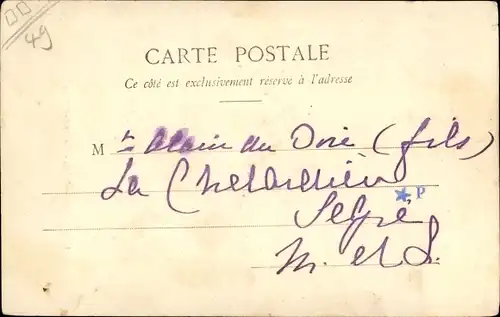 49
CARTE POSTALE
Ce côté est exclusivement réservé à l'adresse
M r Alain du Doré (fils)
La
Segré
P
M. et L.